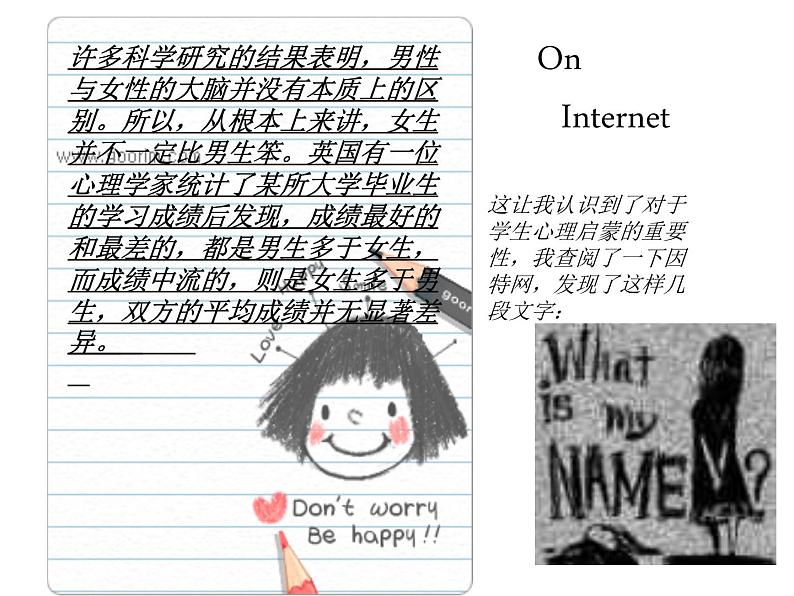 许多科学研究的结果表明，男性
与女性的大脑并没有本质上的区
别。所以，从根本上来讲，女生
并不一定比男生笨。英国有一位
心理学家统计了某所大学毕业生
的学习成绩后发现，成绩最好的
和最差的，都是男生多于女生，
而成绩中流的，则是女生多于男
生，双方的平均成绩并无显著差
异。
Love
Happy
Smile
goor
Don't worry
Be happy!!
On
Internet
这让我认识到了对于
学生心理启蒙的重要
性，我查阅了一下因
特网，发现了这样几
段文字：
What
is my
NAME?